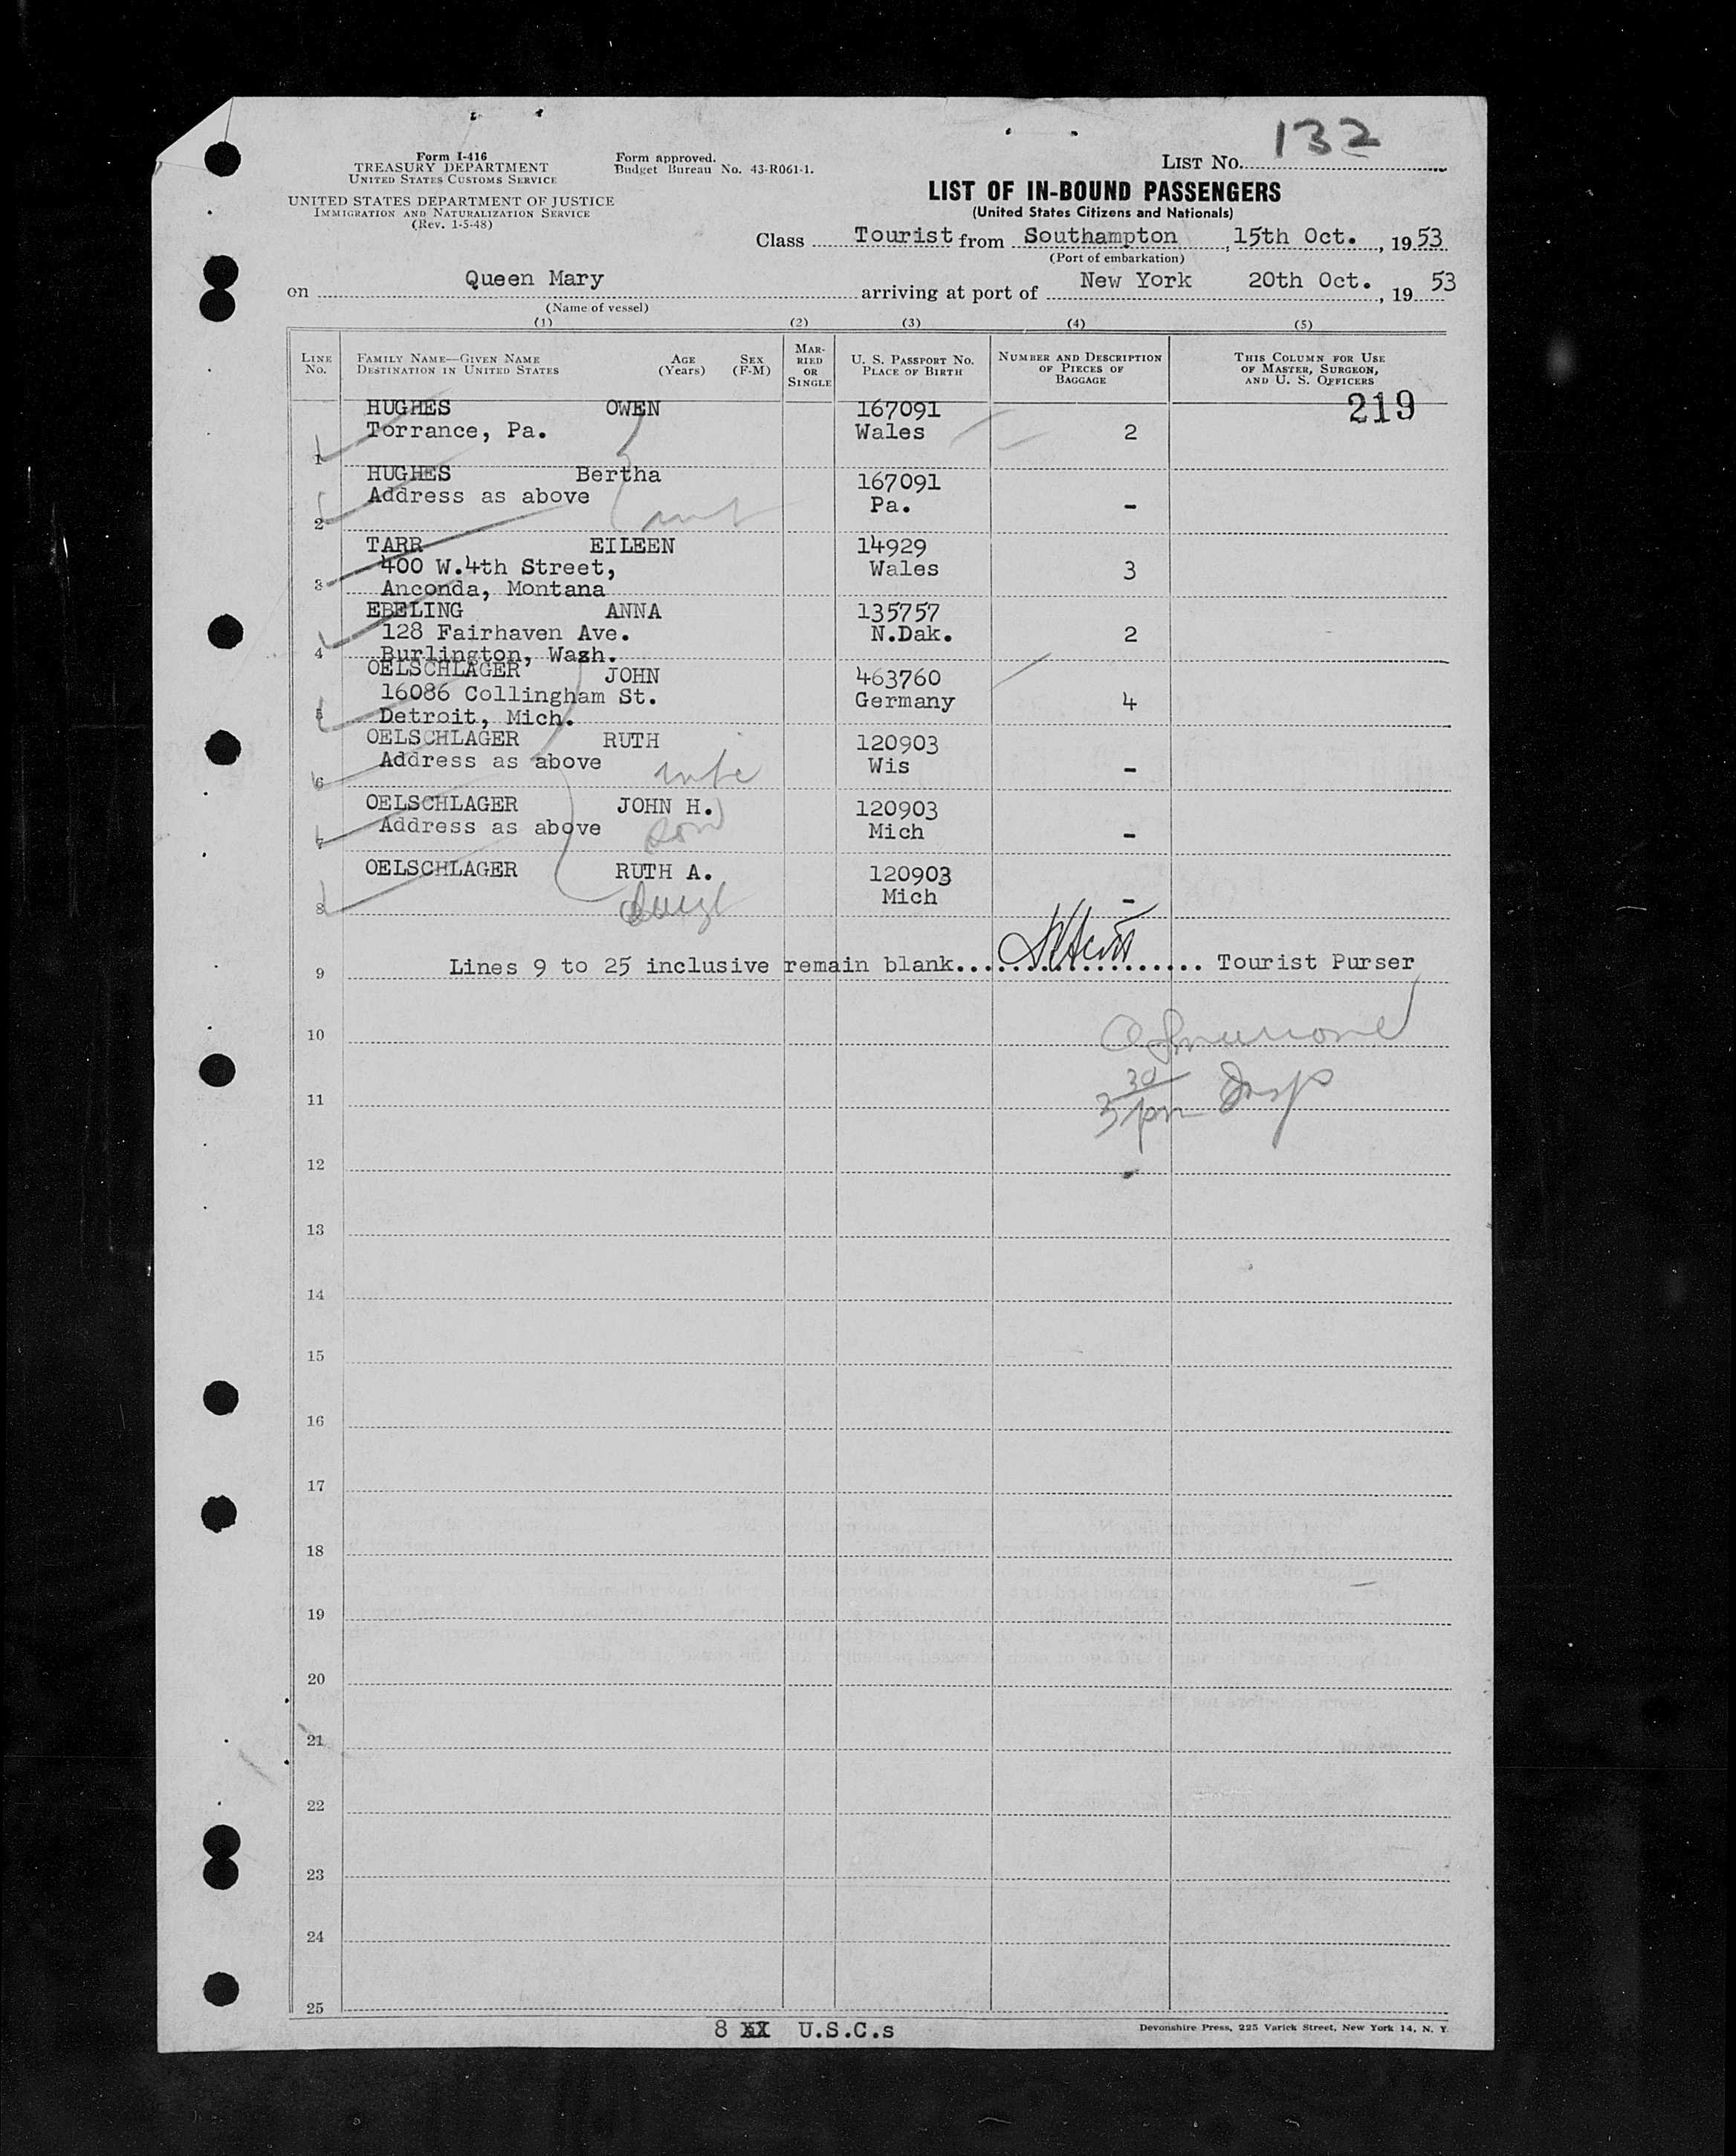 132
Form I-416
TREASURY DEPARTMENT
UNITED STATES CUSTOMS SERVICE
Form approved.
Budget Bureau No. 43-R061-1.
LIST NO.
UNITED STATES DEPARTMENT OF JUSTICE
IMMIGRATION AND NATURALIZATION SERVICE
(Rev. 1-5-48)
LIST OF IN-BOUND PASSENGERS
(United States Citizens and Nationals)
Class Tourist from Southampton, 15th Oct., 1953
(Port of embarkation)
on Queen Mary arriving at port of New York 20th Oct., 1953
(Name of vessel)
(1) (2) (3) (4) (5)
LINE NO. FAMILY NAME—GIVEN NAME DESTINATION IN UNITED STATES AGE (Years) SEX (F-M) MARRIED OR SINGLE U. S. PASSPORT NO. PLACE OF BIRTH NUMBER AND DESCRIPTION OF PIECES OF BAGGAGE THIS COLUMN FOR USE OF MASTER, SURGEON, AND U. S. OFFICERS
219
HUGHES OWEN 167091
Torrance, Pa. Wales 2
1
HUGHES Bertha 167091
Address as above Pa. -
2
TARR EILEEN 14929
400 W.4th Street, Wales 3
3 Anconda, Montana
EBELING ANNA 135757
128 Fairhaven Ave. N.Dak. 2
4 Burlington, Wash.
OELSCHLAGER JOHN 463760
16086 Collingham St. Germany 4
5 Detroit, Mich.
OELSCHLAGER RUTH 120903
Address as above wife Wis -
6
OELSCHLAGER JOHN H. 120903
Address as above son Mich -
7
OELSCHLAGER RUTH A. 120903
Mich -
8
9 Lines 9 to 25 inclusive remain blank.................... Tourist Purser
10
30
11 3 pm Insp
12
13
14
15
16
17
18
19
20
21
22
23
24
25
8 U.S.C.s
Devonshire Press, 225 Varick Street, New York 14, N. Y.